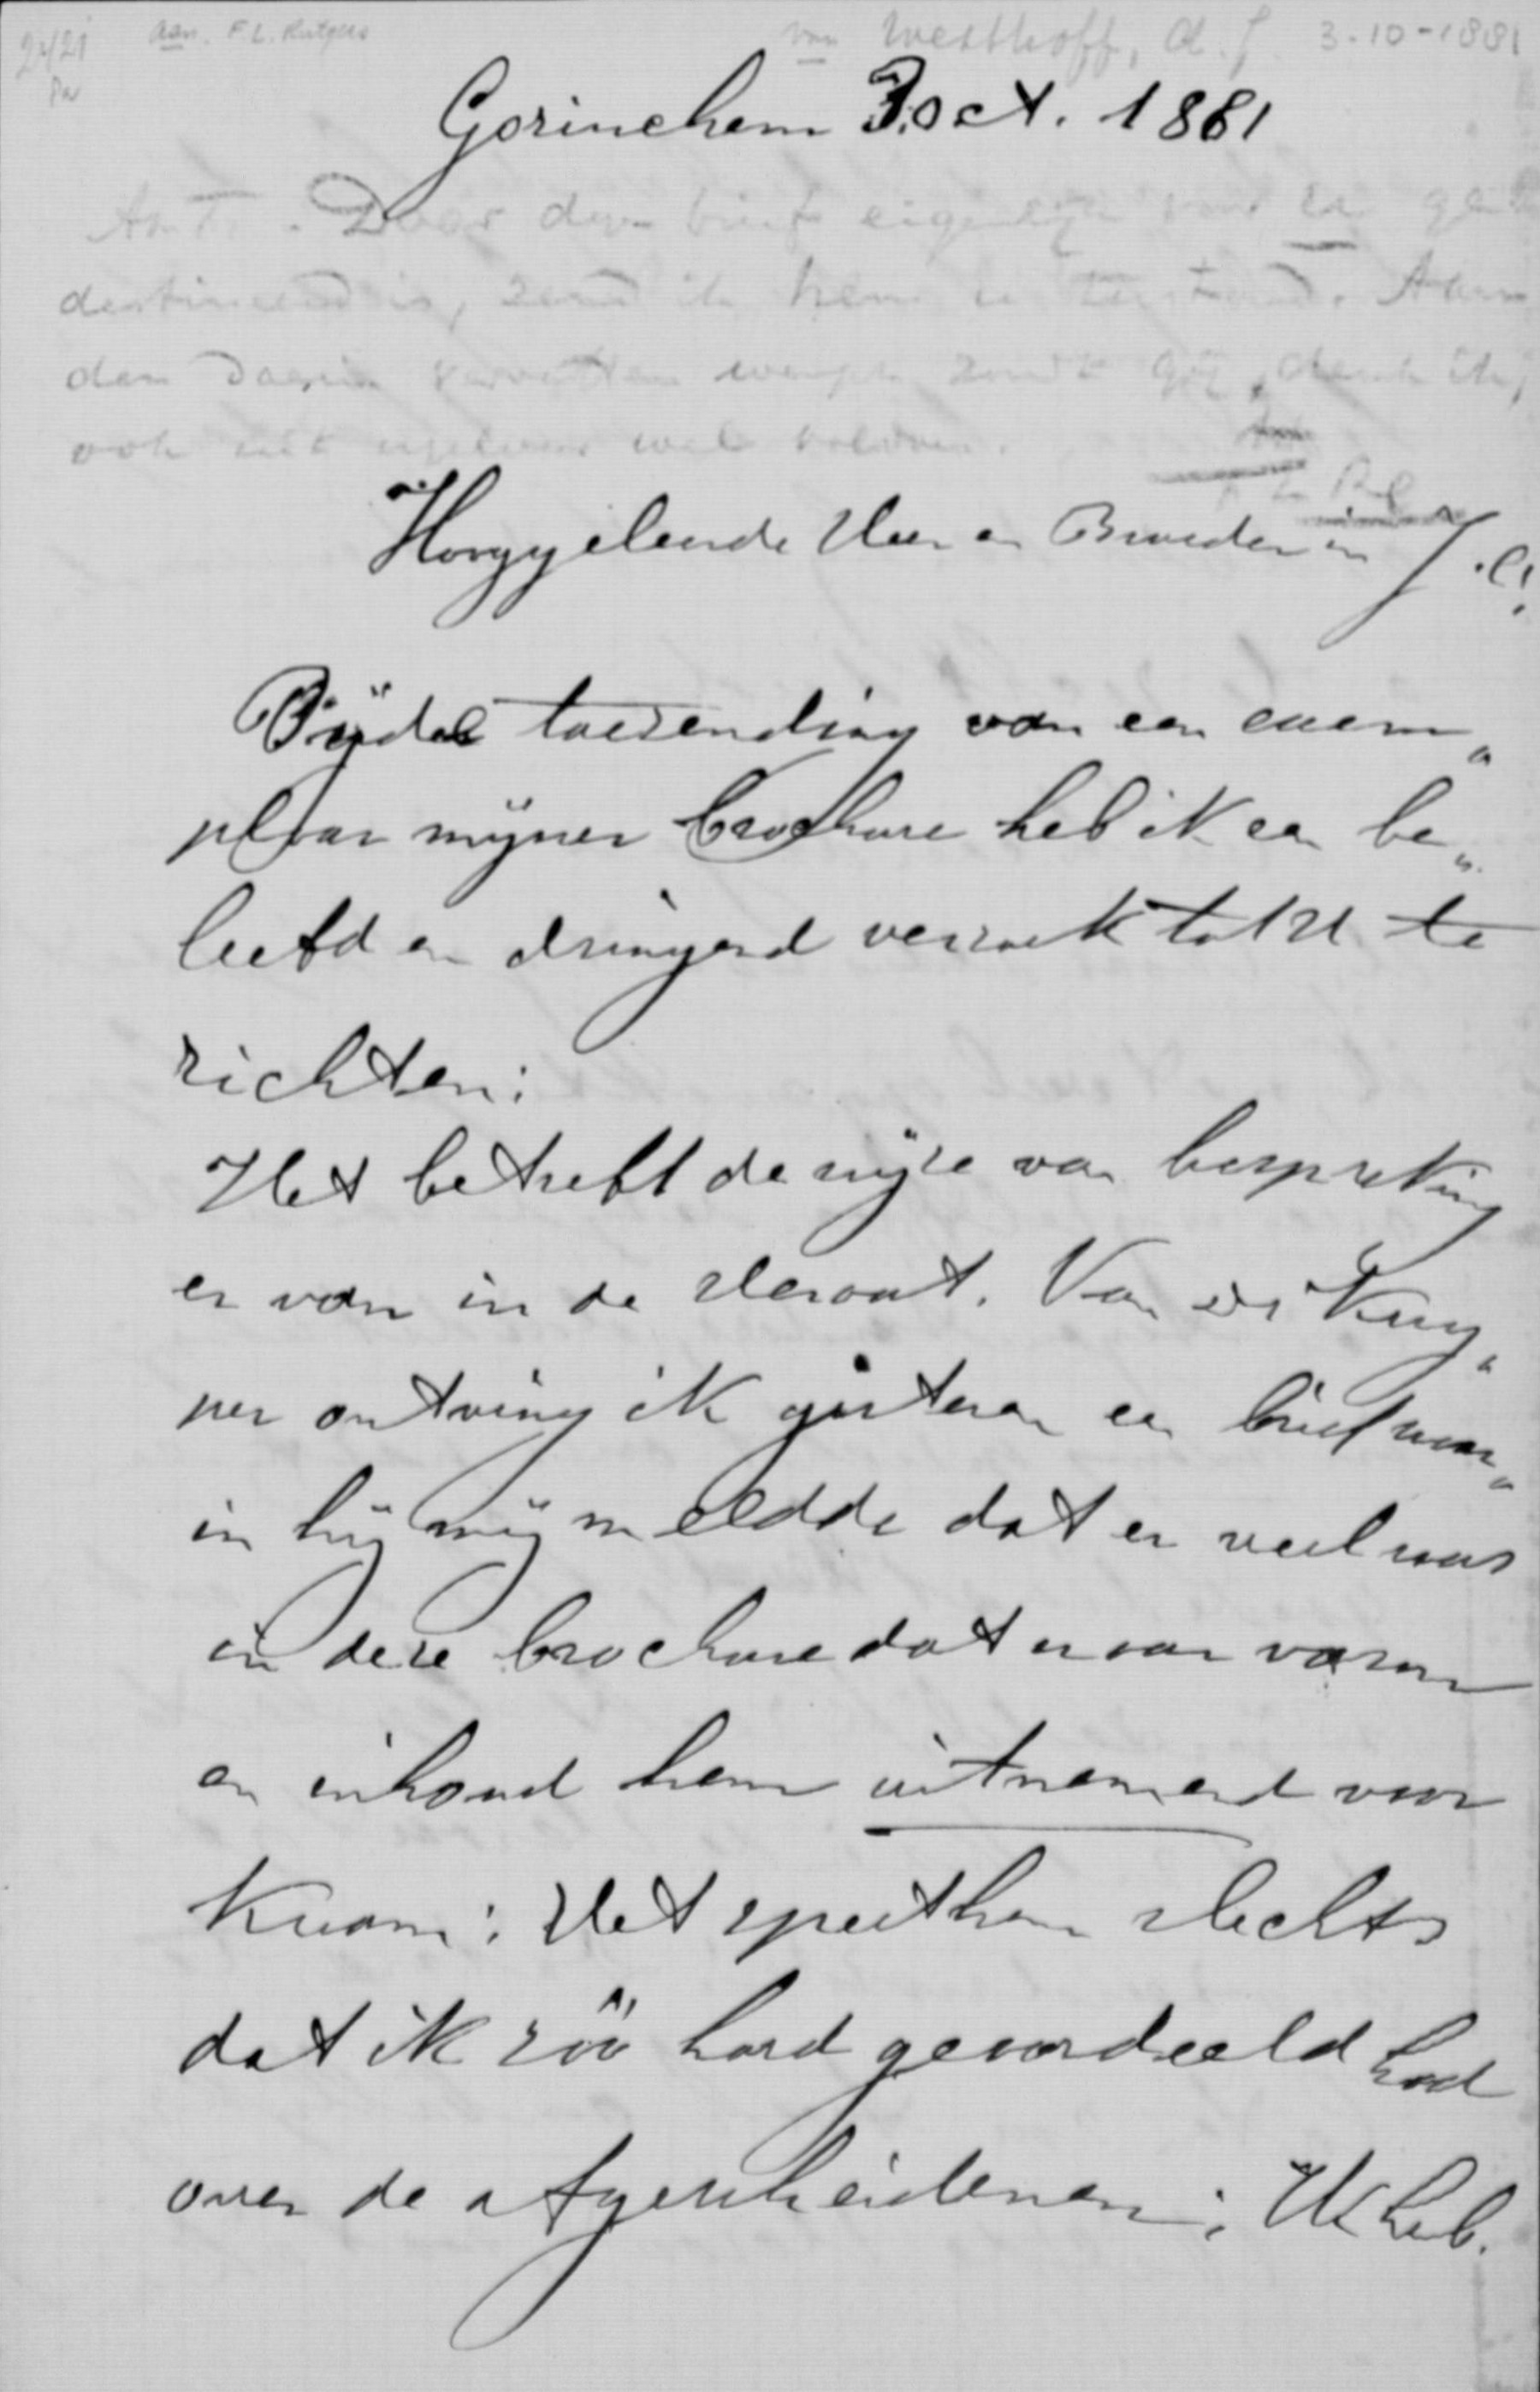 aan. F. L. Rutgers van Westhoff, A. J. 3-10-1881
Gorinchem 3 Oct. 1881
Amt. Daar deze brief eigenlijk voor
destineerd is, zend ik hem u Aan
den daarin vervatten wensch zult gij, denk ik,
ook wel voldoen.
Hooggeleerde Heer en Broeder in J. C!
Bij de toezending van een exem„
plaar mijner brochure heb ik een be„
leefd en dringend verzoek tot U te
richten:
Het betreft de wijze van bespreking
er van in de Heraut. Van Dr Kuy„
per ontving ik gisteren een brief waar„
in hij mij meldde dat er veel was
in deze brochure dat naar vorm
en inhoud hem uitnemend voor
kwam: Het speet hem slechts
dat ik zóó hard geoordeeld had
over de afgescheidenen; Ik heb.